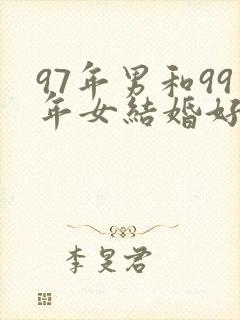 97年男和99
年女結婚好
李旻君